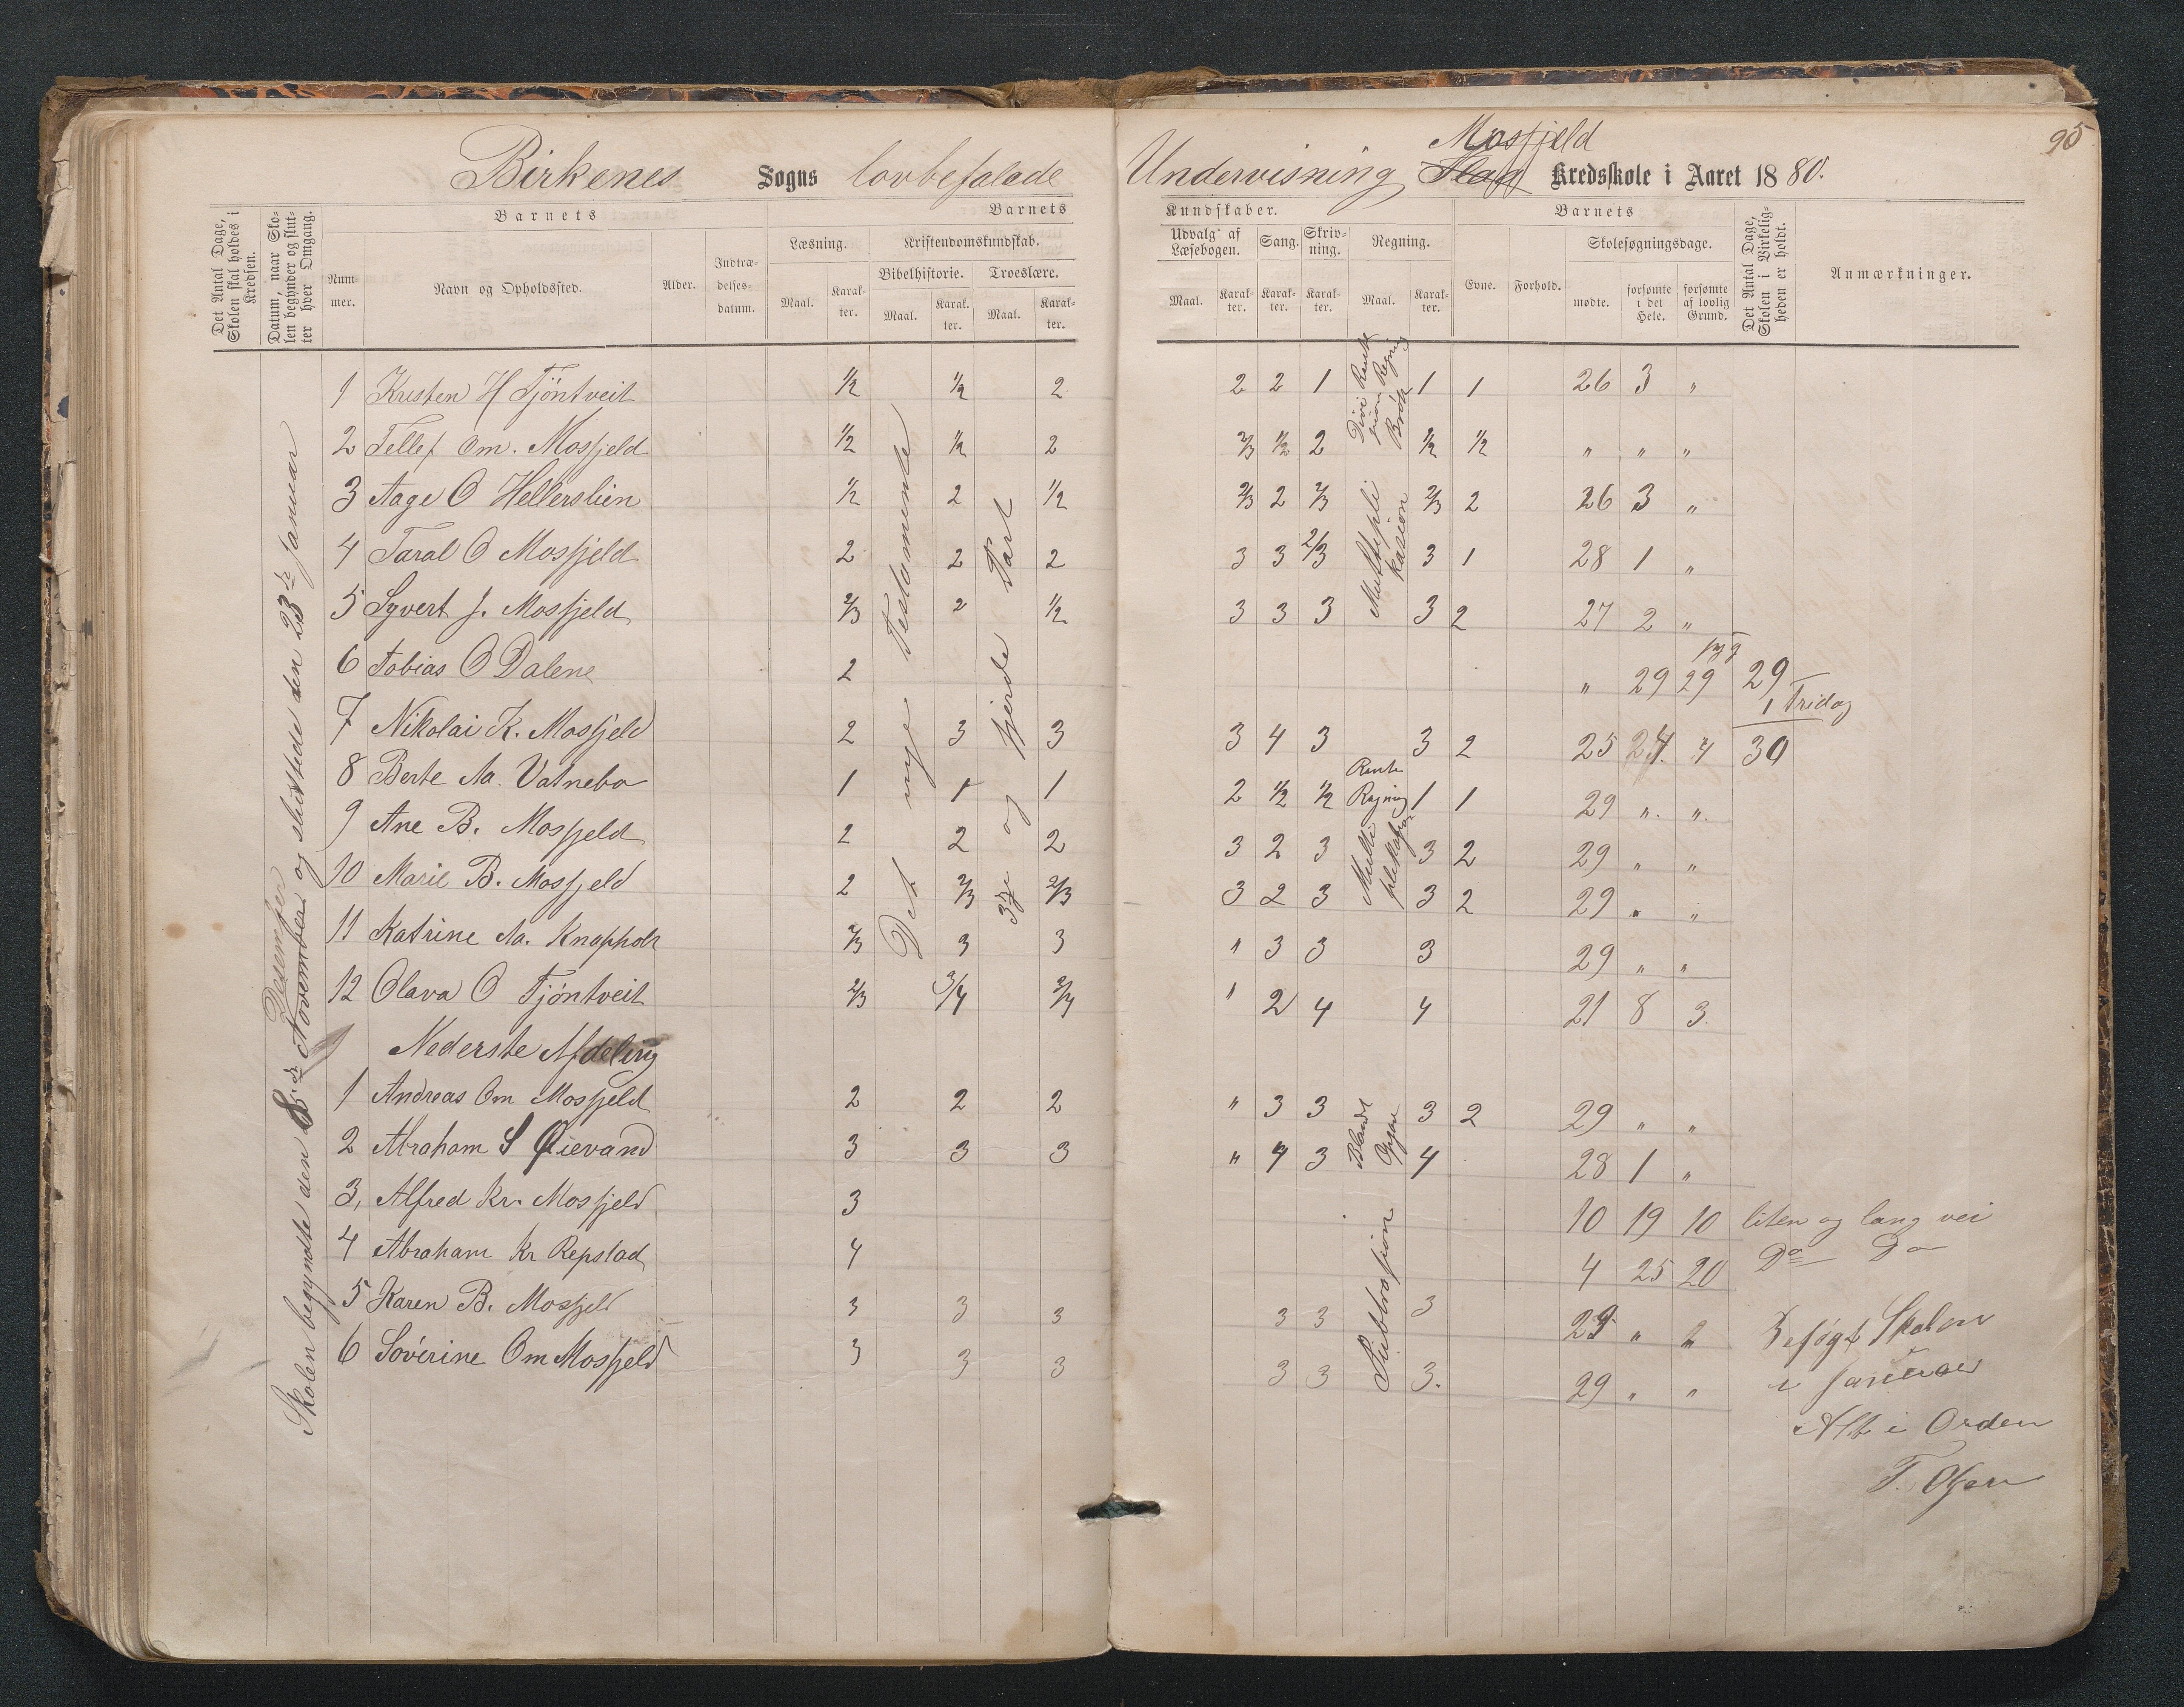 Birkenes Sogns lovbefalede Undervisning Mosfjeld Kredsskole i Aaret 1880.
95
Det Antal Dage, Skolen skal holdes i Kredsen.
Datum, naar Skolen begynder og slutter hver Omgang.
Barnets
Nummer.
Navn og Opholdssted.
Alder.
Indtrædelsesdatum.
Barnets
Læsning.
Maal.
Karakter.
Kristendomskundskab.
Bibelhistorie.
Maal.
Karakter.
Troeslære.
Maal.
Karakter.
Kundskaber.
Udvalg af Læsebogen.
Maal.
Karakter.
Sang.
Karakter.
Skrivning.
Karakter.
Regning.
Maal.
Karakter.
Barnets
Evne.
Forhold.
Skolesøgningsdage.
mødte.
forsømte i det Hele.
forsømte af lovlig Grund.
Det Antal Dage, Skolen i Virkeligheden er holdt.
Anmærkninger.
Skolen begyndte den 8de November og sluttede den 23de Januar
Desember
Det nye Testamente
3die og fjerde Part
1 Kristen H Tjöntveit 1/2 1/2 2 2 2 1 1 1 26 3 "
Divisjon Rente Regning Brök
2 Tellef Om. Mosfjeld 1/2 1/2 2 2/3 1/2 2 1/2 1/2 " " "
3 Aage O Hellerslien 1/2 2 1/2 2/3 2 2/3 2/3 2 26 3 "
Multipli kasion
4 Taral O Mosfjeld 2 2 2 3 3 2/3 3 1 28 1 "
5 Syvert J. Mosfjeld 2/3 2 1/2 3 3 3 3 2 27 2 "
6 Tobias O Dalene 2 " 29 29 29
1 Fridag
7 Nikolai K. Mosfjeld 2 3 3 3 4 3 3 2 25 4 30
8 Berte Aa. Vatnebo 1 1 1 2 1/2 1/2 Rente Regning 1 1 29 " "
9 Ane B. Mosfjeld 2 2 2 3 2 3 3 2 29 " "
10 Marie B. Mosfjeld 2 2/3 2/3 3 2 3 3 2 29 " "
11 Katrine Aa. Knapholt 2/3 3 3 " 3 3 3 29 " "
12 Olava O Tjöntveit 2/3 3/4 3/4 " 2 4 4 21 8 3
Nederste Afdeling
1 Andreas Om Mosfjeld 2 2 2 " 3 3 3 2 29 " "
2 Abraham S Øievand 3 3 3 " 4 3 4 28 1 "
3, Alfred Kr. Mosfjeld 3 10 19 10 liten og lang vei
Subtrasjion
4 Abraham Kr Repstad 4 4 25 20 Do Do
5 Karen B. Mosfjeld 3 3 3 3 3 3 29 " "
6 Søverine Om Mosfjeld 3 3 3 3 3 3. 29 " "
Besøgt Skolen
i Januar
Alt i Orden
T. Olsen